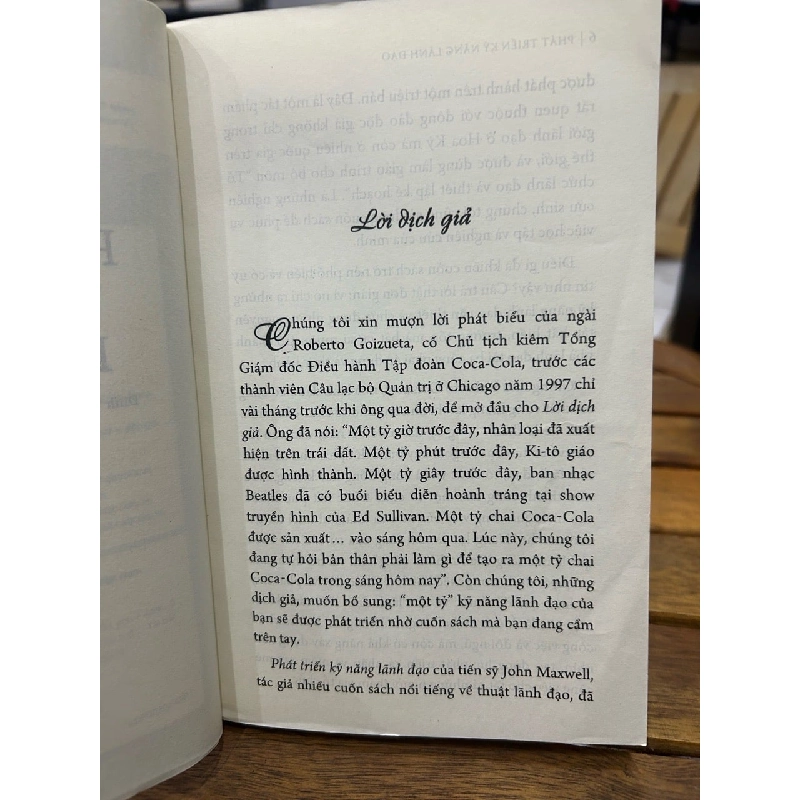 Lời dịch giả
Chúng tôi xin mượn lời phát biểu của ngài
Roberto Goizueta, cố Chủ tịch kiêm Tổng
Giám đốc Điều hành Tập đoàn Coca-Cola, trước các
thành viên Câu lạc bộ Quản trị ở Chicago năm 1997 chỉ
vài tháng trước khi ông qua đời, để mở đầu cho Lời dịch
giả. Ông đã nói: “Một tỷ giờ trước đây, nhân loại đã xuất
hiện trên trái đất. Một tỷ phút trước đây, Ki-tô giáo
được hình thành. Một tỷ giây trước đây, ban nhạc
Beatles đã có buổi biểu diễn hoành tráng tại show
truyền hình của Ed Sullivan. Một tỷ chai Coca-Cola
được sản xuất... vào sáng hôm qua. Lúc này, chúng tôi
đang tự hỏi bản thân phải làm gì để tạo ra một tỷ chai
Coca-Cola trong sáng hôm nay”. Còn chúng tôi, những
dịch giả, muốn bổ sung: “một tỷ” kỹ năng lãnh đạo của
bạn sẽ được phát triển nhờ cuốn sách mà bạn đang cầm
trên tay.
Phát triển kỹ năng lãnh đạo của tiến sỹ John Maxwell,
tác giả nhiều cuốn sách nổi tiếng về thuật lãnh đạo, đã